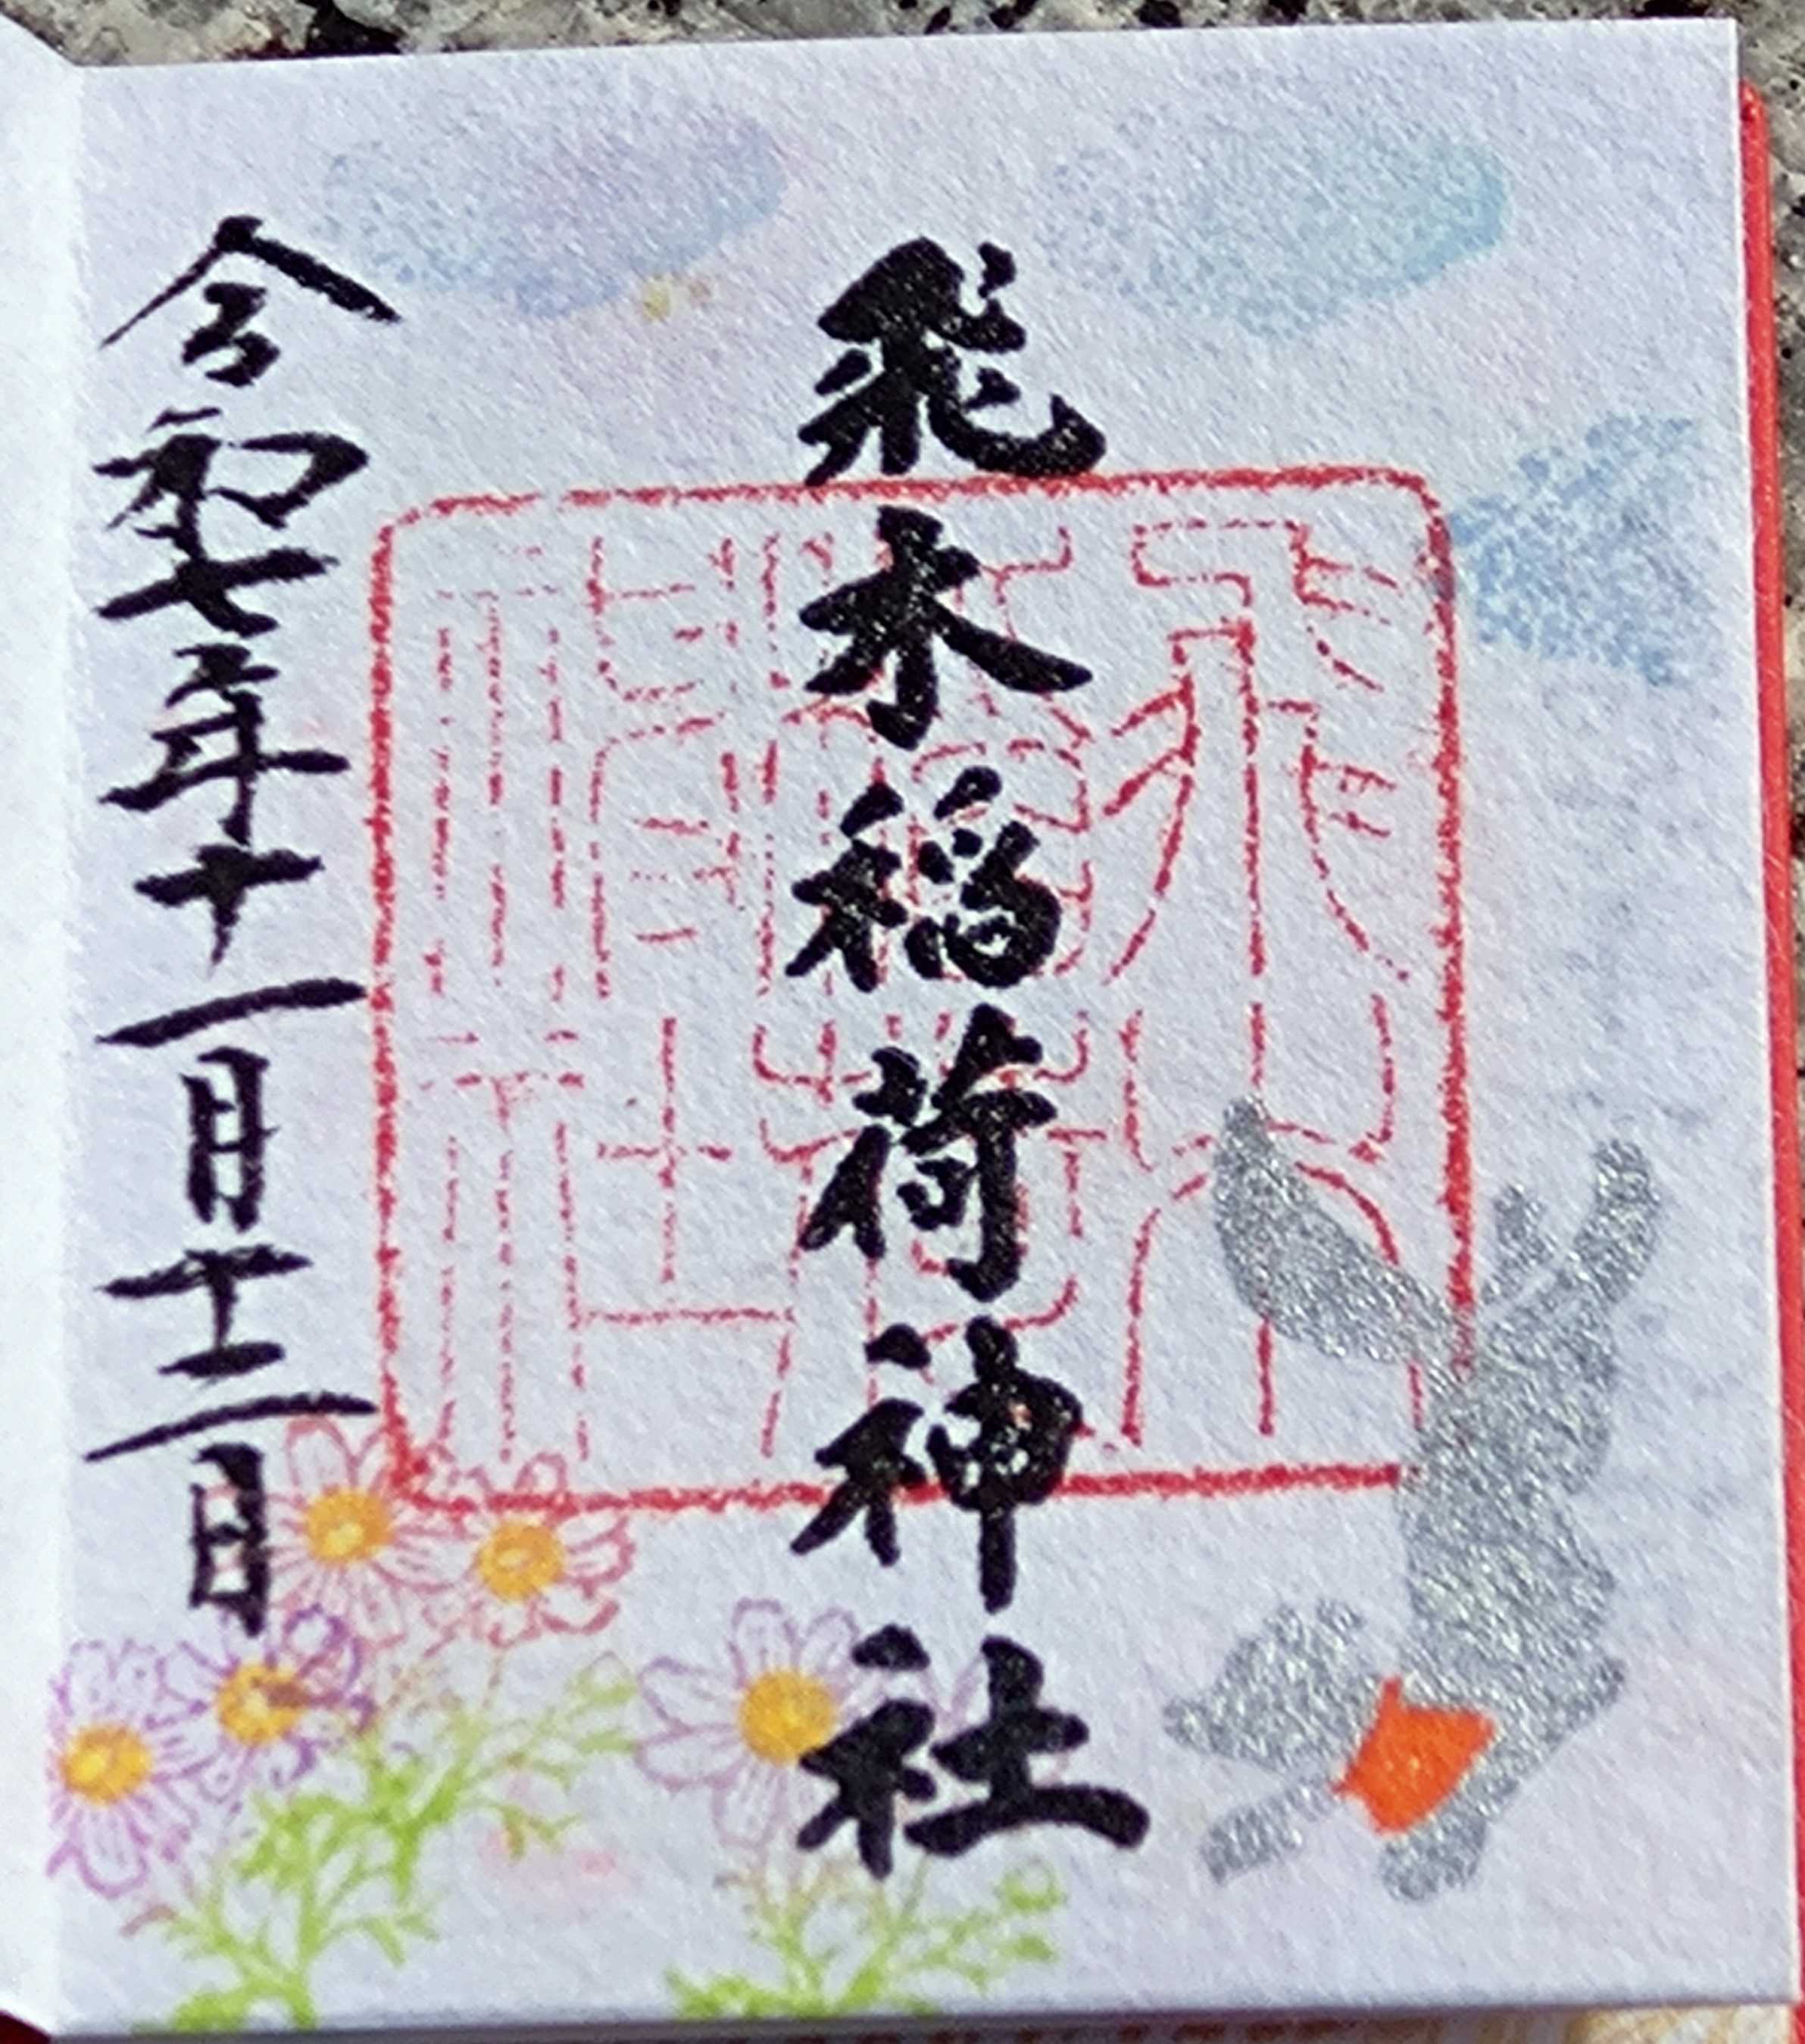 飛木稲荷神社
令和七年十一月十二日
飛木
稲荷
神社